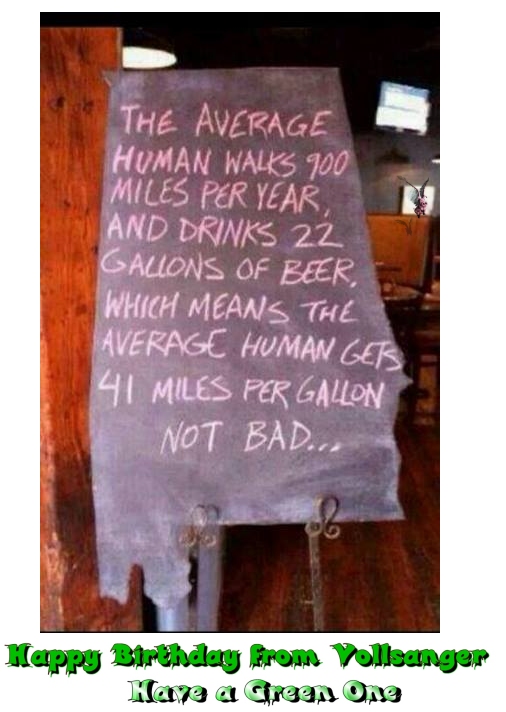 THE AVERAGE
HUMAN WALKS 900
MILES PER YEAR,
AND DRINKS 22
GALLONS OF BEER.
WHICH MEANS THE
AVERAGE HUMAN GETS
41 MILES PER GALLON
NOT BAD...
Happy Birthday from Vollsanger
Have a Green One